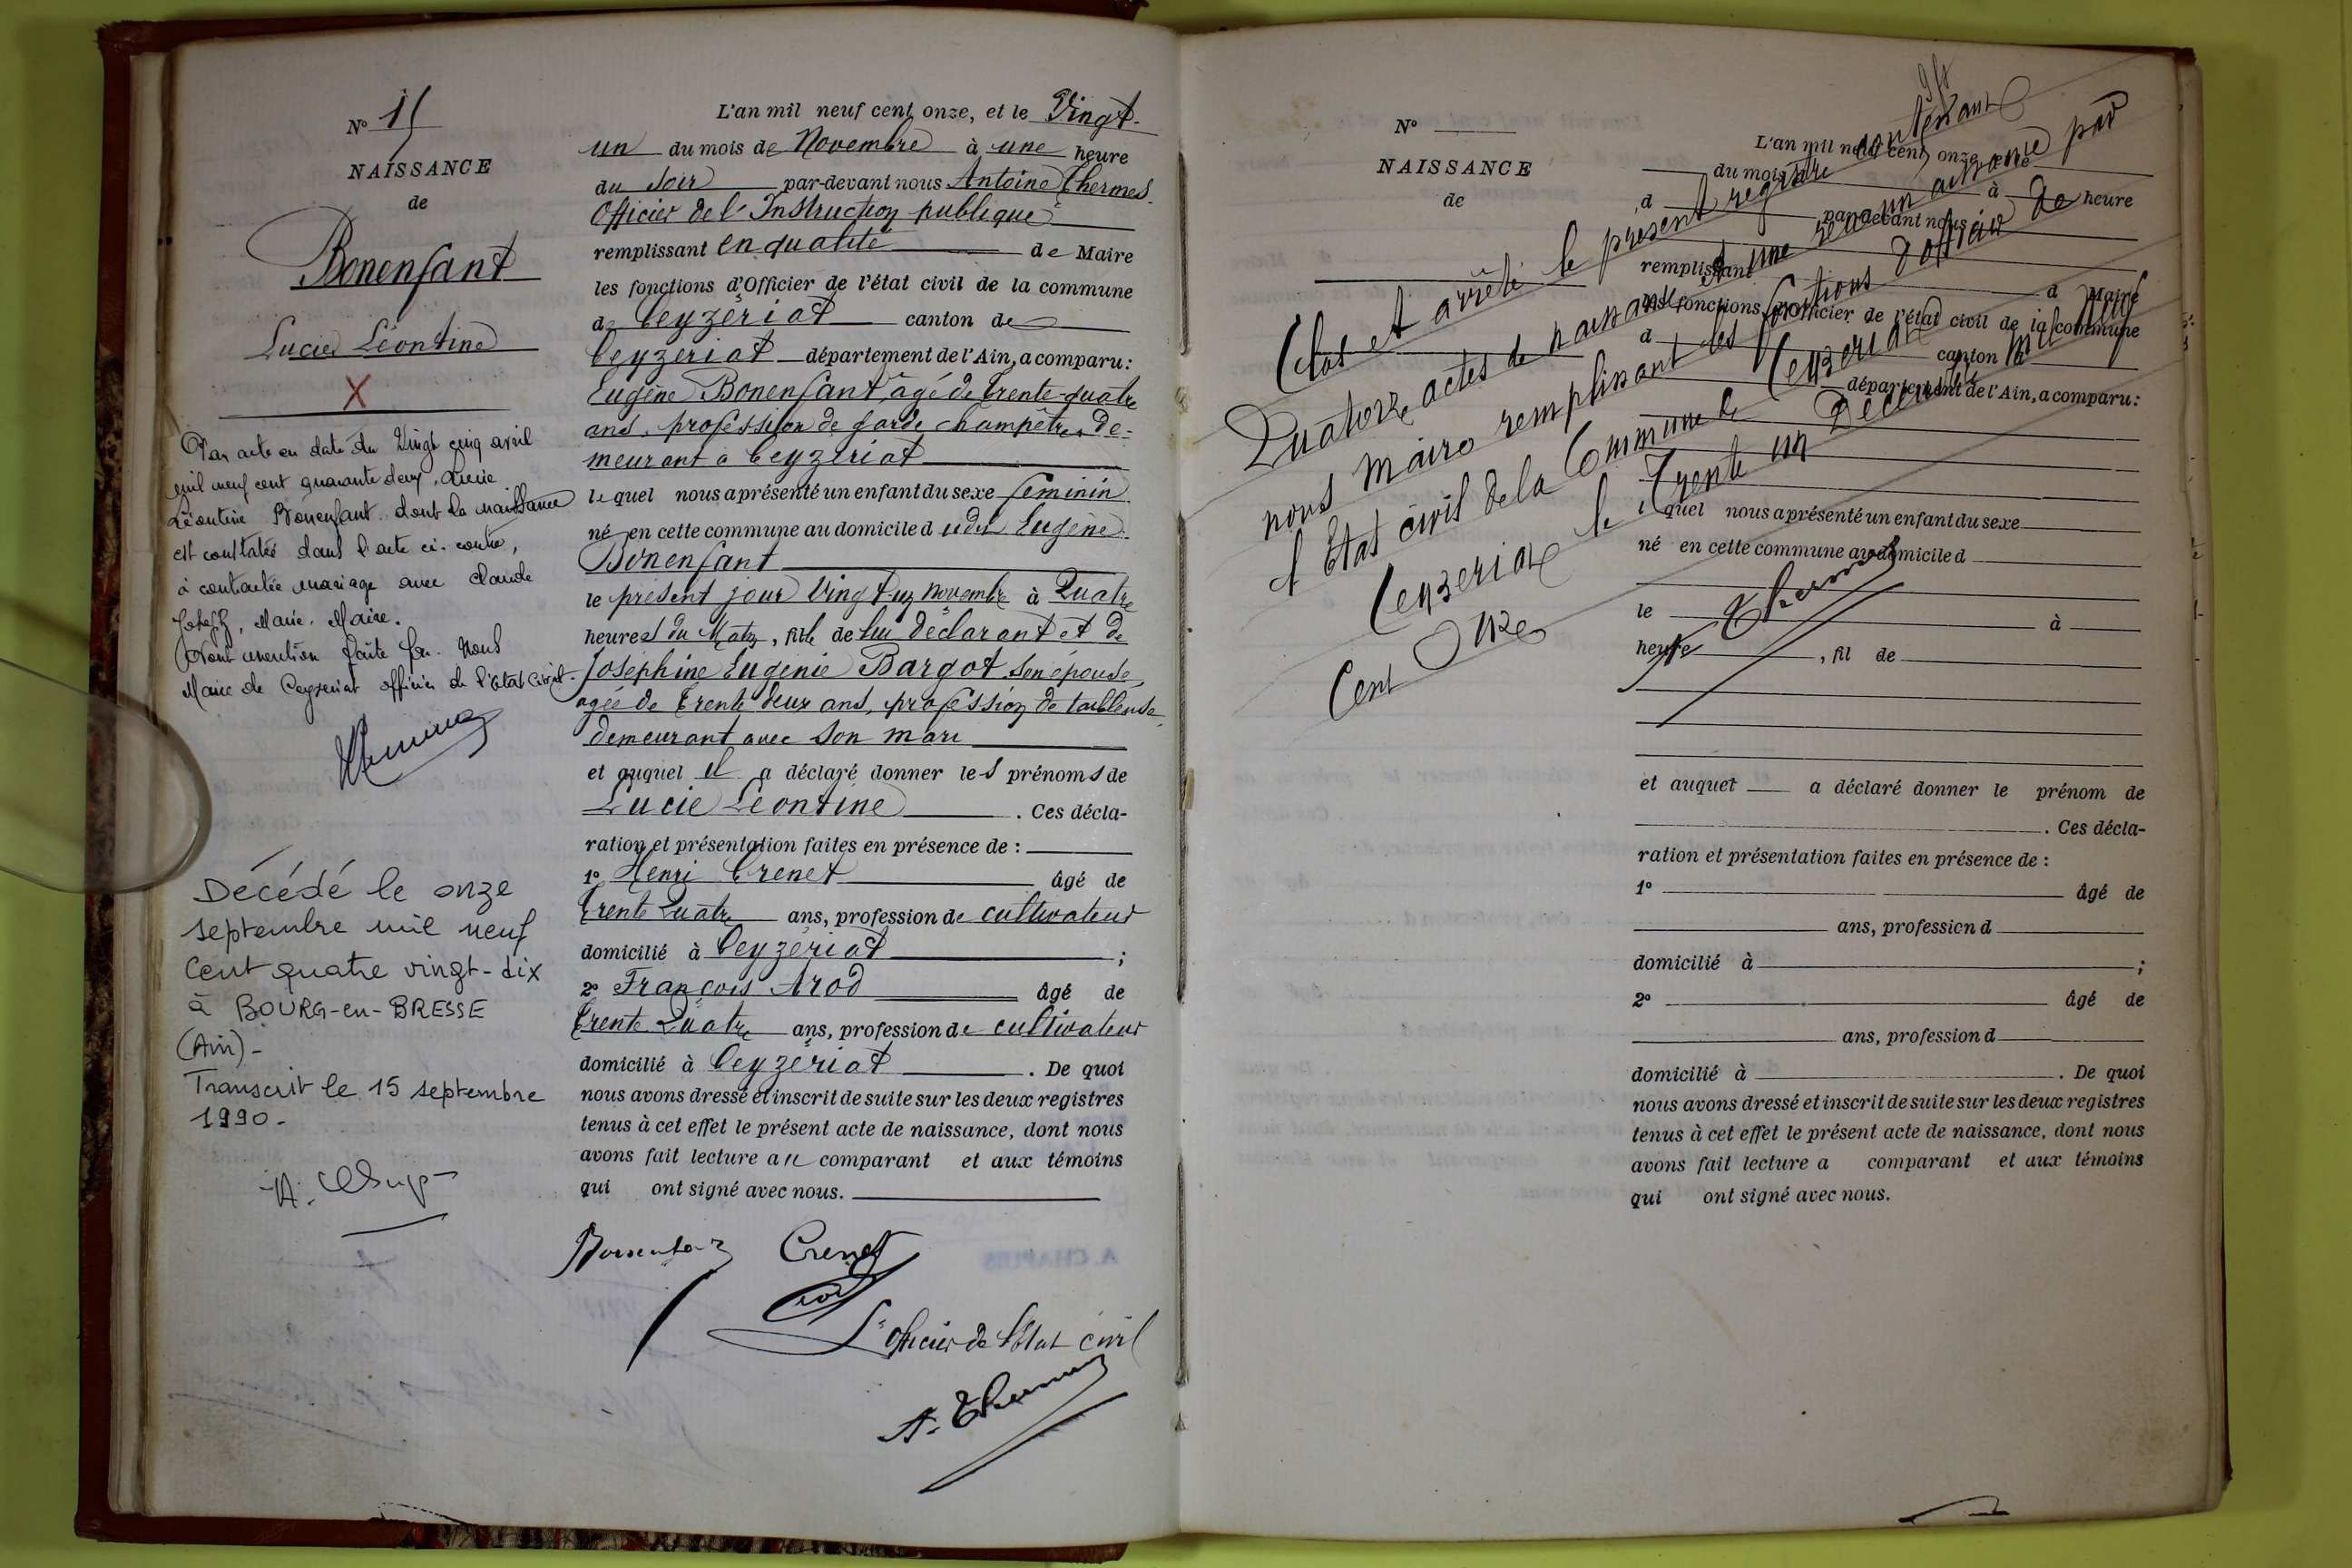 N° 15
NAISSANCE
de
Bonenfant
Lucie Léontine
X
Par acte en date du Vingt cinq avril
mil neuf cent quarante deux, Lucie
Léontine Bonenfant dont la naissance
est constatée dans l'acte ci-contre,
à contractée mariage avec Claude
Joseph, Marie. Maire.
Dont mention faite par Nous
Maire de Ceyzeriat officier de l'état Civil-
Décédé le onze
septembre mil neuf
Cent quatre vingt-dix
à BOURG-en-BRESSE
(Ain)-
Transcrit le 15 septembre
1990-
L'an mil neuf cent onze, et le Vingt-
un du mois de Novembre à une heure
du Soir par-devant nous Antoine Thermes.
Officier de l'Instruction publique
remplissant en qualité de Maire
les fonctions d'Officier de l'état civil de la commune
de Ceyzériat canton de
Ceyzeriat département de l'Ain, a comparu:
Eugène Bonenfant âgé de trente-quatre
ans, profession de garde champêtre, de-
meurant à Ceyzériat
lequel nous a présenté un enfant du sexe féminin
né en cette commune au domicile dudit Eugène
Bonenfant
le présent jour Vingt-un novembre à Quatre
heures du Matin, fille de lui déclarant et de
Joséphine Eugénie Bargot son épouse,
agée de trente deux ans, profession de tailleuse
demeurant avec son mari
et auquel il a déclaré donner les prénoms de
Lucie Léontine. Ces décla-
ration et présentation faites en présence de:
1° Henri Crenet âgé de
trente Quatre ans, profession de cultivateur
domicilié à Ceyzériat;
2° François Arod âgé de
trente Quatre ans, profession de cultivateur
domicilié à Ceyzériat. De quoi
nous avons dressé et inscrit de suite sur les deux registres
tenus à cet effet le présent acte de naissance, dont nous
avons fait lecture au comparant et aux témoins
qui ont signé avec nous.
Bonenfant Crenet
Arod
L'officier de l'Etat civil
A. Thermes
N°
NAISSANCE
de
Clos et arrêté le présent registre contenant
Quatorze actes de naissance et une reconnaissance par
nous Maire remplissant les fonctions d'officier de
l'Etat civil de la Commune de Ceyzeriat
Ceyzeriat le Trente un Décembre mil neuf
Cent Onze
Thermes
L'an mil neuf cent onze, et le
du mois d à heure
d par-devant nous
remplissant d Maire
les fonctions d'Officier de l'état civil de la commune
d canton d
département de l'Ain, a comparu:
lequel nous a présenté un enfant du sexe
né en cette commune au domicile d
le à
heure, fil de
et auquel a déclaré donner le prénom de
. Ces décla-
ration et présentation faites en présence de:
1° âgé de
ans, profession d
domicilié à ;
2° âgé de
ans, profession d
domicilié à . De quoi
nous avons dressé et inscrit de suite sur les deux registres
tenus à cet effet le présent acte de naissance, dont nous
avons fait lecture a comparant et aux témoins
qui ont signé avec nous.